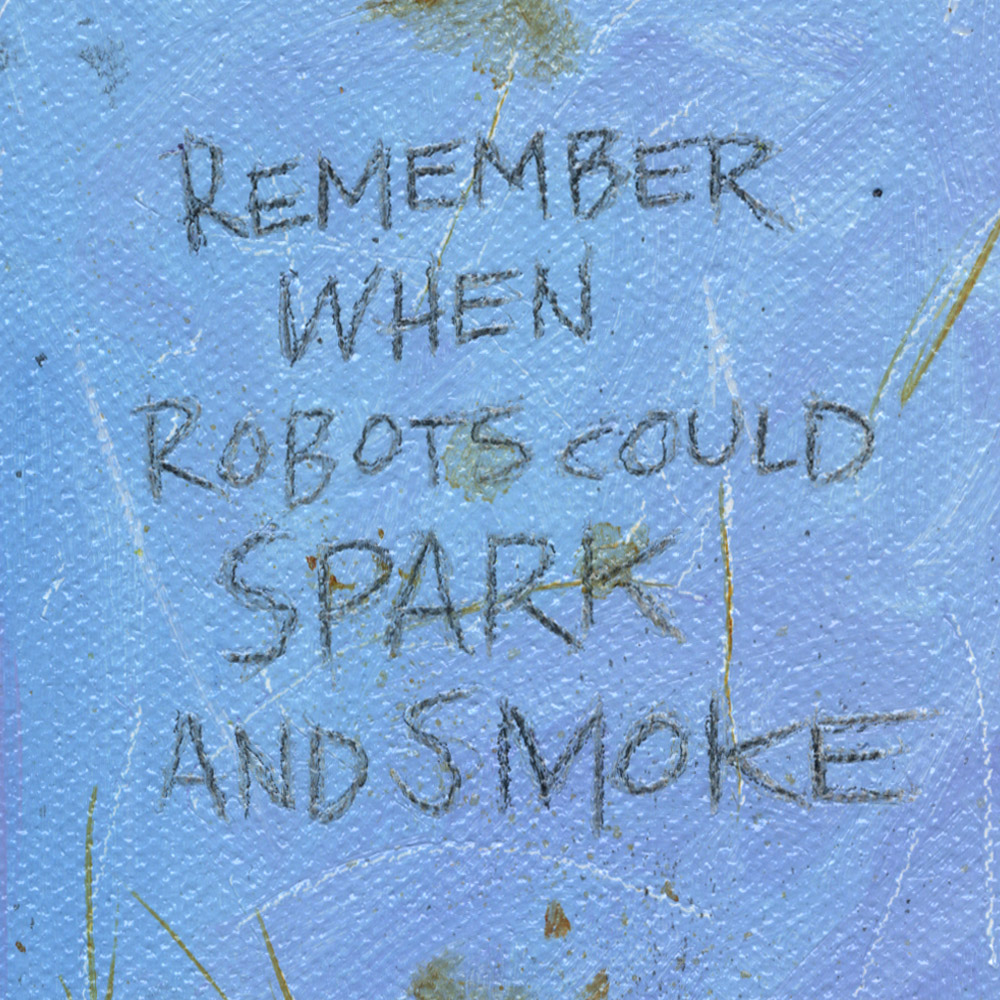 REMEMBER
WHEN
ROBOTS COULD
SPARK
AND SMOKE